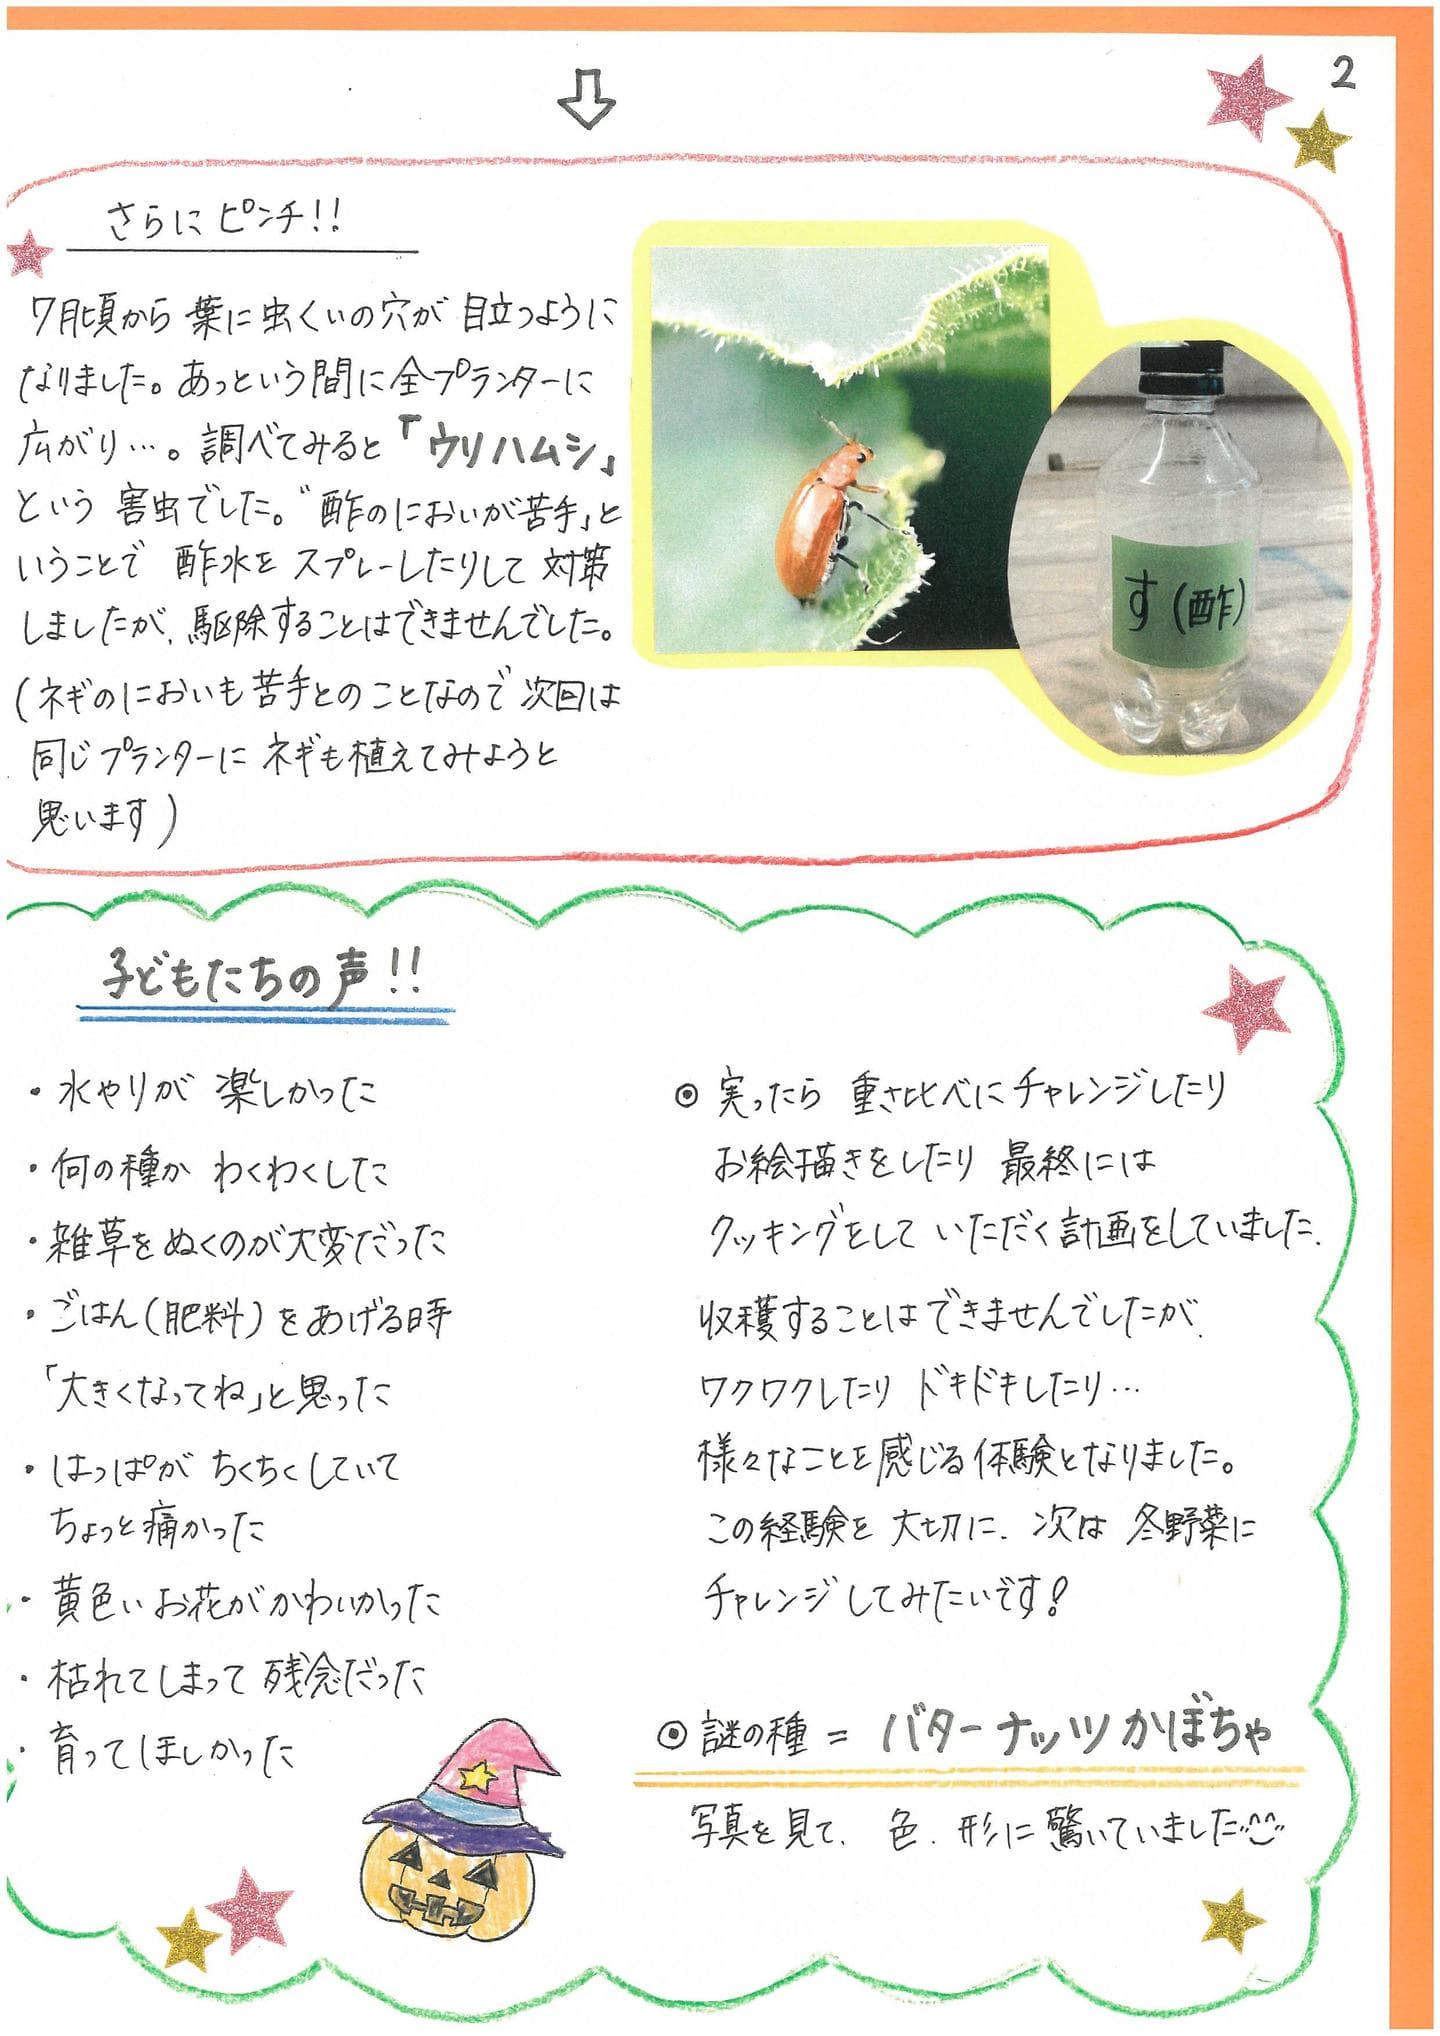 2
さらにピンチ!!
7月頃から 葉に虫くいの穴が 目立つように
なりました。あっという間に全プランターに
広がり…。調べてみると「ウリハムシ」
という 害虫でした。"酢のにおいが苦手」と
いうことで 酢水を スプレーしたりして 対策
しましたが、駆除することはできませんでした。
(ネギのにおいも苦手とのことなので 次回は
同じプランターに ネギも植えてみようと
思います)
す(酢)
子どもたちの声!!
・水やりが 楽しかった
・何の種か わくわくした
・雑草をぬくのが大変だった
・ごはん(肥料)をあげる時
「大きくなってね」と思った
・はっぱが ちくちくしていて
ちょっと痛かった
・黄色いお花がかわいかった
・枯れてしまって 残念だった
・育ってほしかった
◎ 実ったら 重さ比べにチャレンジしたり
お絵描きをしたり 最終には
クッキングをして いただく計画をしていました.
収穫することはできませんでしたが、
ワクワクしたり ドキドキしたり…
様々なことを感じる体験となりました。
この経験を 大切に、次は 冬野菜に
チャレンジしてみたいです!
◎ 謎の種 = バターナッツかぼちゃ
写真を見て、色、形に驚いていました